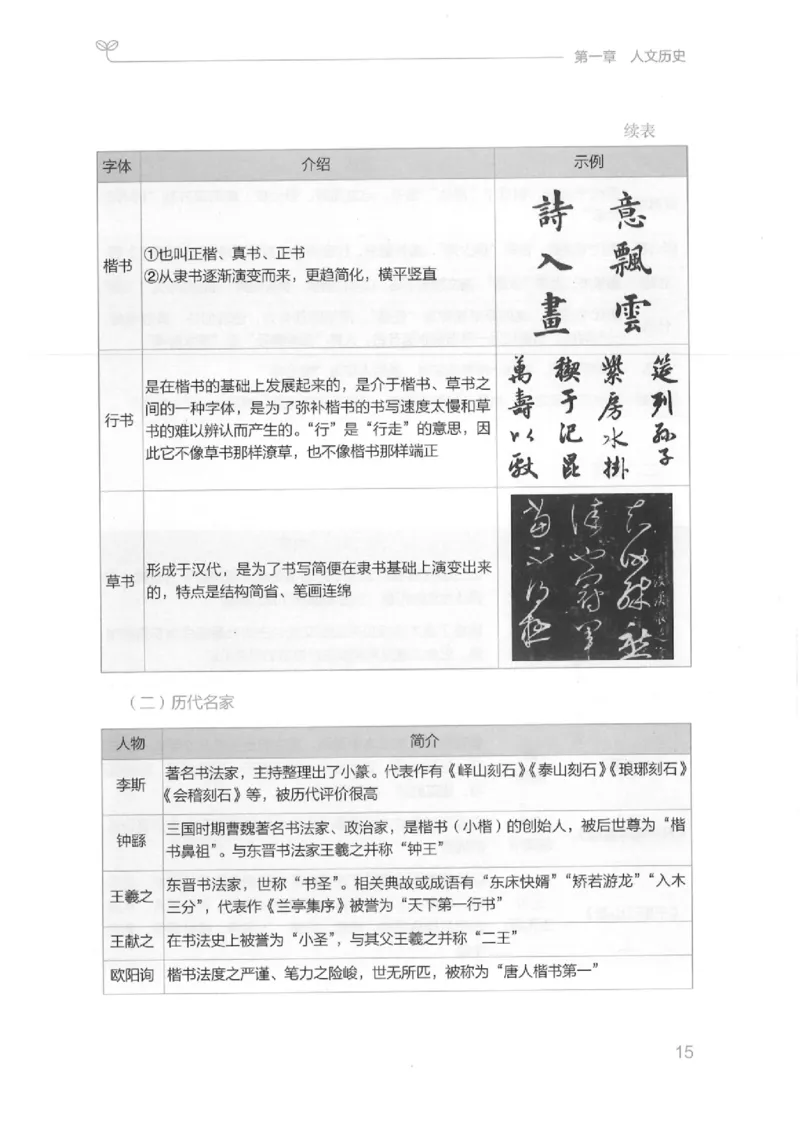 第一章 人文历史
续表
字体 介绍 示例
楷书
①也叫正楷、真书、正书
②从隶书逐渐演变而来，更趋简化，横平竖直
意飘雲
詩入畫
行书
是在楷书的基础上发展起来的，是介于楷书、草书之
间的一种字体，是为了弥补楷书的书写速度太慢和草
书的难以辨认而产生的。“行”是“行走”的意思，因
此它不像草书那样潦草，也不像楷书那样端正
筵列孙子
紫房水掛
稷于记昆
萬壽以献
草书
形成于汉代，是为了书写简便在隶书基础上演变出来
的，特点是结构简省、笔画连绵
（二）历代名家
人物 简介
李斯
著名书法家，主持整理出了小篆。代表作有《峄山刻石》《泰山刻石》《琅琊刻石》
《会稽刻石》等，被历代评价很高
钟繇
三国时期曹魏著名书法家、政治家，是楷书（小楷）的创始人，被后世尊为“楷
书鼻祖”。与东晋书法家王羲之并称“钟王”
王羲之
东晋书法家，世称“书圣”。相关典故或成语有“东床快婿”“矫若游龙”“入木
三分”，代表作《兰亭集序》被誉为“天下第一行书”
王献之 在书法史上被誉为“小圣”，与其父王羲之并称“二王”
欧阳询 楷书法度之严谨、笔力之险峻，世无所匹，被称为“唐人楷书第一”
15